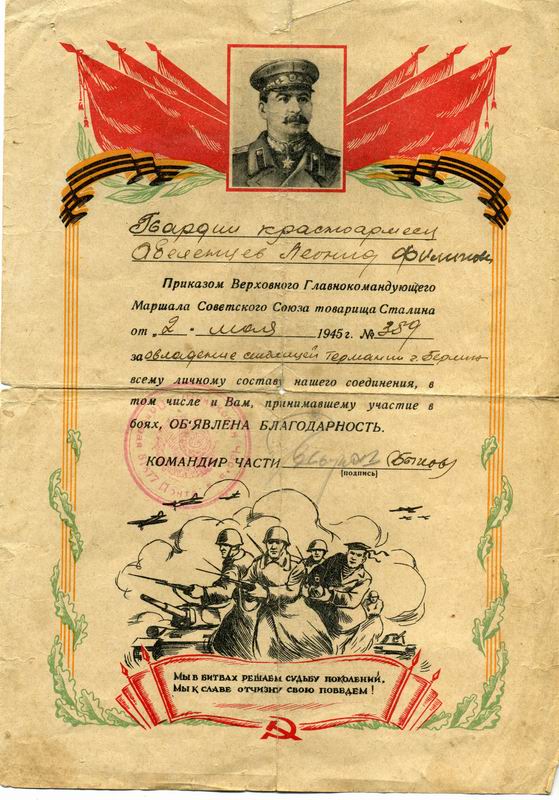 Гвардии красноармеец
Авелетцев Леонид Филипов
Приказом Верховного Главнокомандующего
Маршала Советского Союза товарища Сталина
от „2" мая 1945 г. № 359
за овладение столицей Германии г. Берлин
всему личному составу нашего соединения, в
том числе и Вам, принимавшему участие в
боях, ОБ'ЯВЛЕНА БЛАГОДАРНОСТЬ.
КОМАНДИР ЧАСТИ (Быков)
(подпись)
МЫ В БИТВАХ РЕШАЕМ СУДЬБУ ПОКОЛЕНИЙ,
МЫ К СЛАВЕ ОТЧИЗНУ СВОЮ ПОВЕДЕМ!